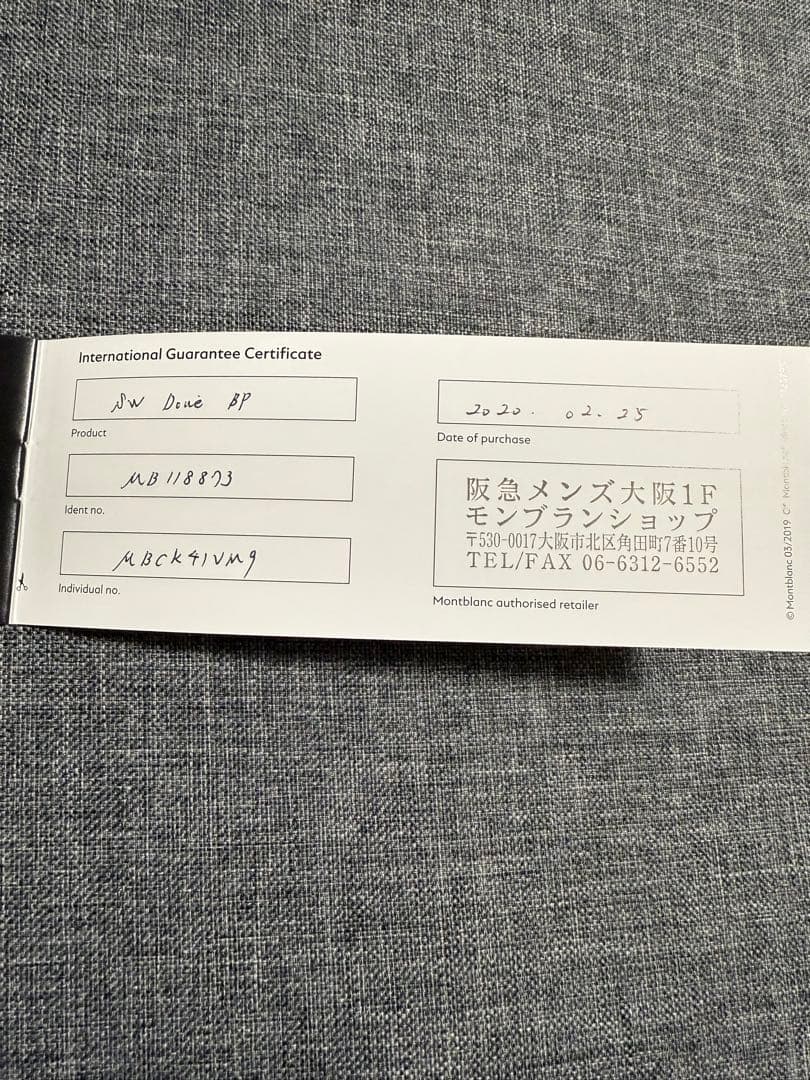 International Guarantee Certificate
SW Doué BP
Product
MB118873
Ident no.
MBCK41VM9
Individual no.
2020. 02. 25
Date of purchase
阪急メンズ大阪1F
モンブランショップ
〒530-0017大阪市北区角田町7番10号
TEL/FAX 06-6312-6552
Montblanc authorised retailer
© Montblanc 03/2019